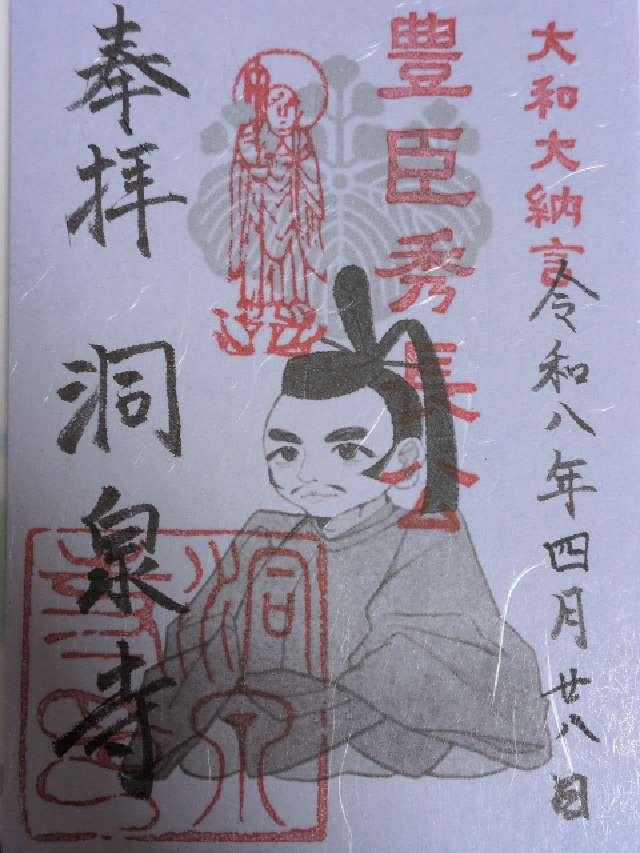 大和大納言
令和八年四月廿八日
豊臣秀長公
奉拝
洞泉寺
洞泉